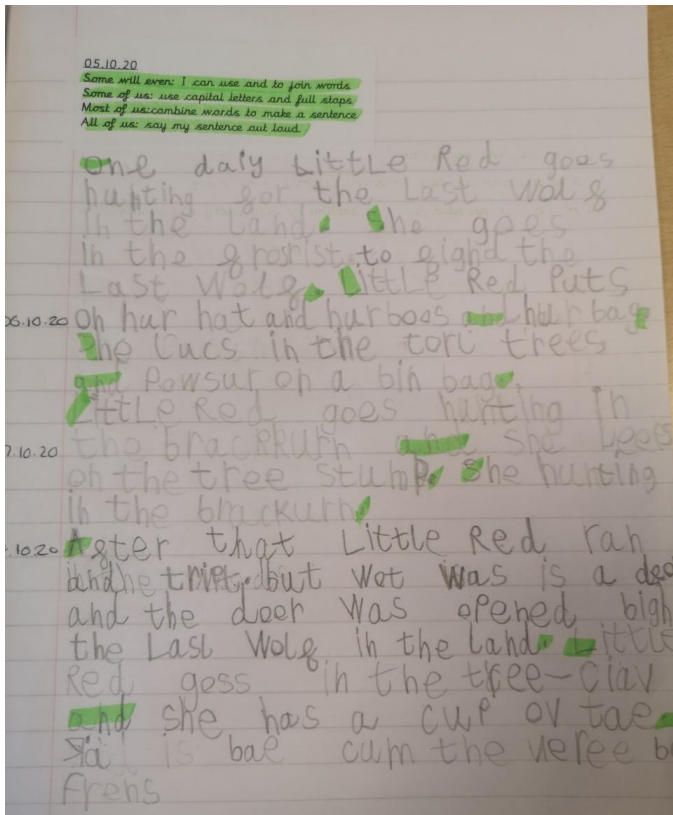 05.10.20
Some will even: I can use and to join words
Some of us: use capital letters and full stops
Most of us:combine words to make a sentence
All of us: say my sentence out loud
One daiy Little Red goes
hunting for the Last Wolf
in the Land. She goes
in the frosrist to find the
Last Wolf. Little Red Puts
06.10.20 on hur hat and hur boos and hur bag
She Lucs in the torl trees
and Powsur on a bin bag.
Little Red goes hunting in
.10.20 the brackkurn and she
on the tree stump. She hunting
in the brackurn.
.10.20 After that Little Red ran
but wot was is a
and the doer was opened bigh
the Last Wolf in the Land. Little
Red goss in the tree-clav
and she has a cup ov tae.
is bae cum the veree b
frens